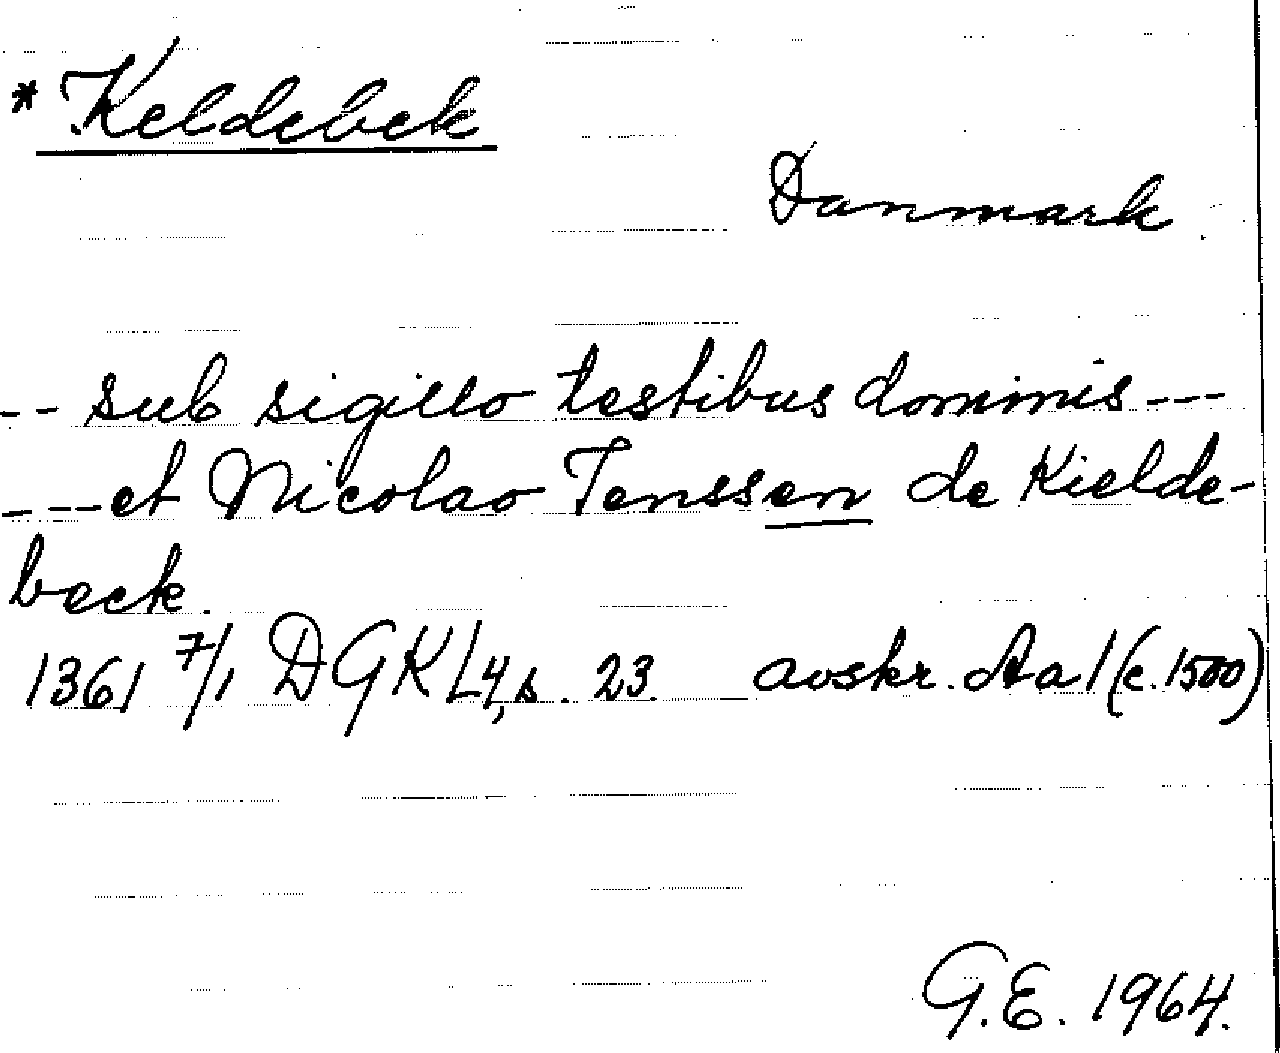 * Keldebek
Danmark
-- sub sigillo testibus dominis ---
--- et Nicolao Jenssen de Kielde-
beck.
1361 7/1 DGKL4, s. 23 avskr. Aa 1 (c. 1500)
G.E. 1964.